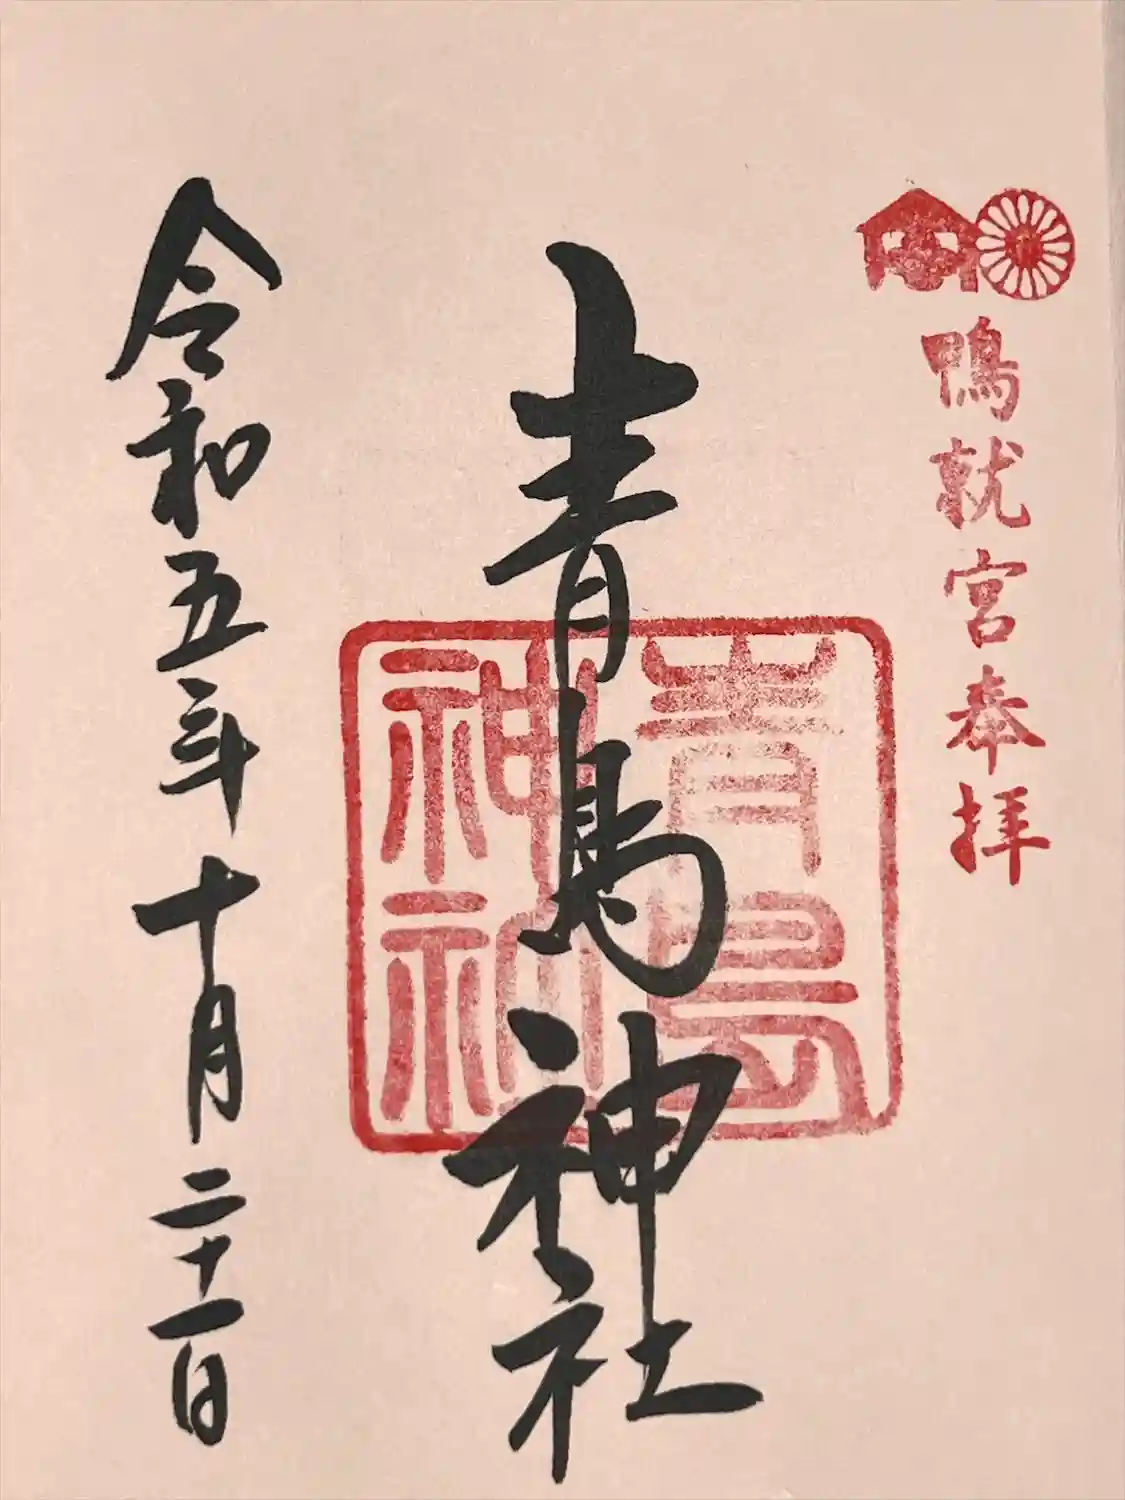 鴨就宮奉拝
青島神社
青島神社
令和五年十月二十一日